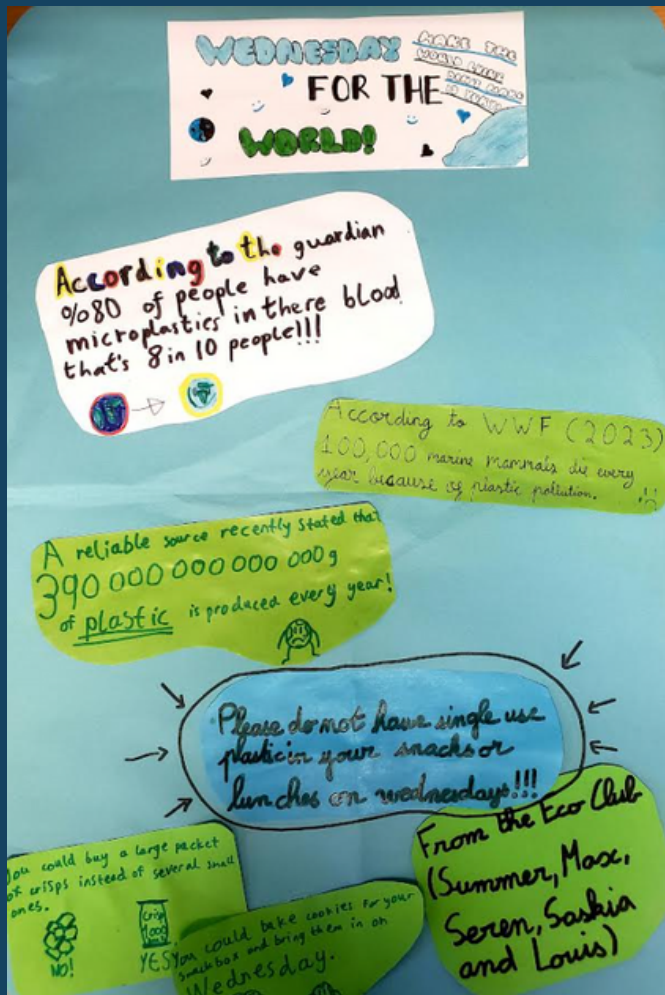 WEDNESDAY
FOR THE
WORLD!
MAKE THE
WORLD
According to the guardian
%80 of people have
microplastics in there blood
that's 8 in 10 people!!!
According to WWF (2023)
100,000 marine mammals die every
year because of plastic pollution.
A reliable source recently stated that
390 000 000 000 000g
of plastic is produced every year!
Please do not have single use
plastic in your snacks or
lunches on wednesdays!!!
From the Eco Club
(Summer, Max,
Seren, Saskia
and Louis)
you could buy a large packet
of crisps instead of several small
ones.
NO!
Crisp
1000
YES
You could bake cookies for your
snackbox and bring them in on
Wednesday.